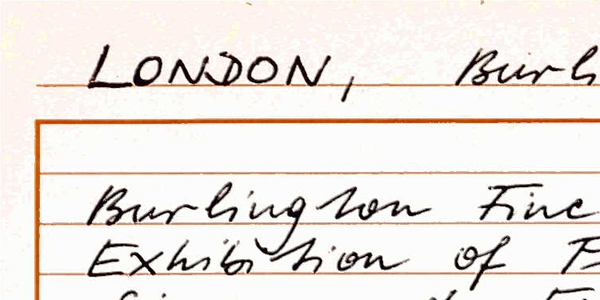 LONDON, Burl
Burlington Fine
Exhibition of